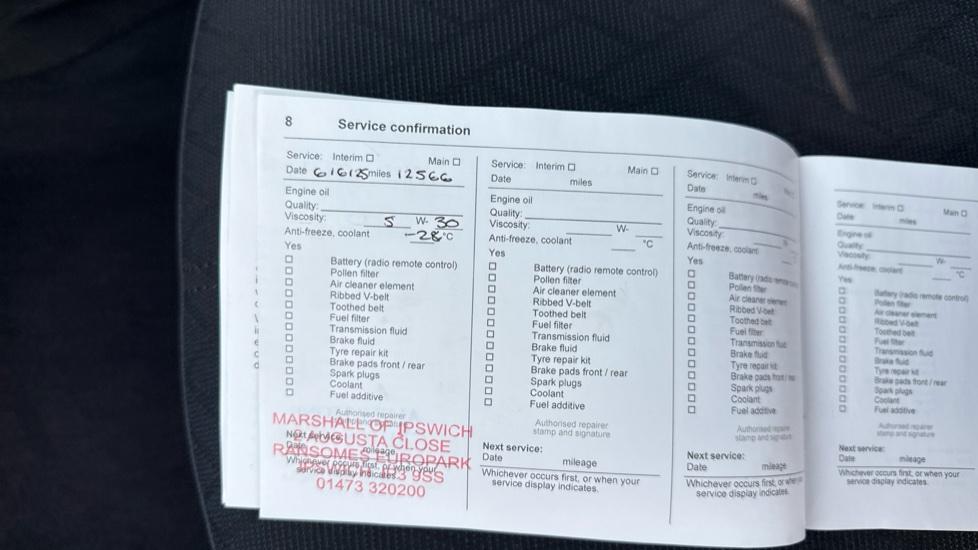 8 Service confirmation
Service: Interim ☐ Main ☐
Date 6/6/25 miles 12566
Engine oil
Quality:
Viscosity: 5 W- 30
Anti-freeze, coolant -28 °C
Yes
☐ Battery (radio remote control)
☐ Pollen filter
☐ Air cleaner element
☐ Ribbed V-belt
☐ Toothed belt
☐ Fuel filter
☐ Transmission fluid
☐ Brake fluid
☐ Tyre repair kit
☐ Brake pads front / rear
☐ Spark plugs
☐ Coolant
☐ Fuel additive
Authorised repairer
MARSHALL OF IPSWICH
Next service:
AUGUSTA CLOSE
Date mileage
RANSOMES EUROPARK
Whichever occurs first, or when your
service display indicates.
3 9SS
01473 320200
Service: Interim ☐ Main ☐
Date miles
Engine oil
Quality:
Viscosity: W-
Anti-freeze, coolant °C
Yes
☐ Battery (radio remote control)
☐ Pollen filter
☐ Air cleaner element
☐ Ribbed V-belt
☐ Toothed belt
☐ Fuel filter
☐ Transmission fluid
☐ Brake fluid
☐ Tyre repair kit
☐ Brake pads front / rear
☐ Spark plugs
☐ Coolant
☐ Fuel additive
Authorised repairer
stamp and signature
Next service:
Date mileage
Whichever occurs first, or when your
service display indicates.
Service: Interim ☐
Date miles
Engine oil
Quality:
Viscosity:
Anti-freeze, coolant
Yes
☐ Battery (radio
☐ Pollen filter
☐ Air cleaner element
☐ Ribbed V-belt
☐ Toothed belt
☐ Fuel filter
☐ Transmission
☐ Brake fluid
☐ Tyre repair kit
☐ Brake pads front
☐ Spark plugs
☐ Coolant
☐ Fuel additive
Authorised
stamp and
Next service:
Date mileage
Whichever occurs first, or
service display indicates.
Service: Interim ☐ Main ☐
Date miles
Engine oil
Quality:
Viscosity: W-
Anti-freeze, coolant °C
Yes
☐ Battery (radio remote control)
☐ Pollen filter
☐ Air cleaner element
☐ Ribbed V-belt
☐ Toothed belt
☐ Fuel filter
☐ Transmission fluid
☐ Brake fluid
☐ Tyre repair kit
☐ Brake pads front / rear
☐ Spark plugs
☐ Coolant
☐ Fuel additive
Authorised repairer
stamp and signature
Next service:
Date mileage
Whichever occurs first, or when your
service display indicates.